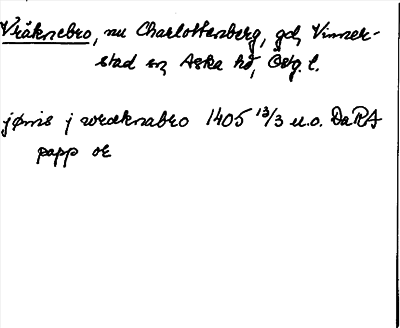 Vråknebro, nu Charlottenberg, gd, Vinner-
stad sn, Aska hd, Ög. l.
jønis j wræknabro 1405 13/3 u.o. DaRA
papp or